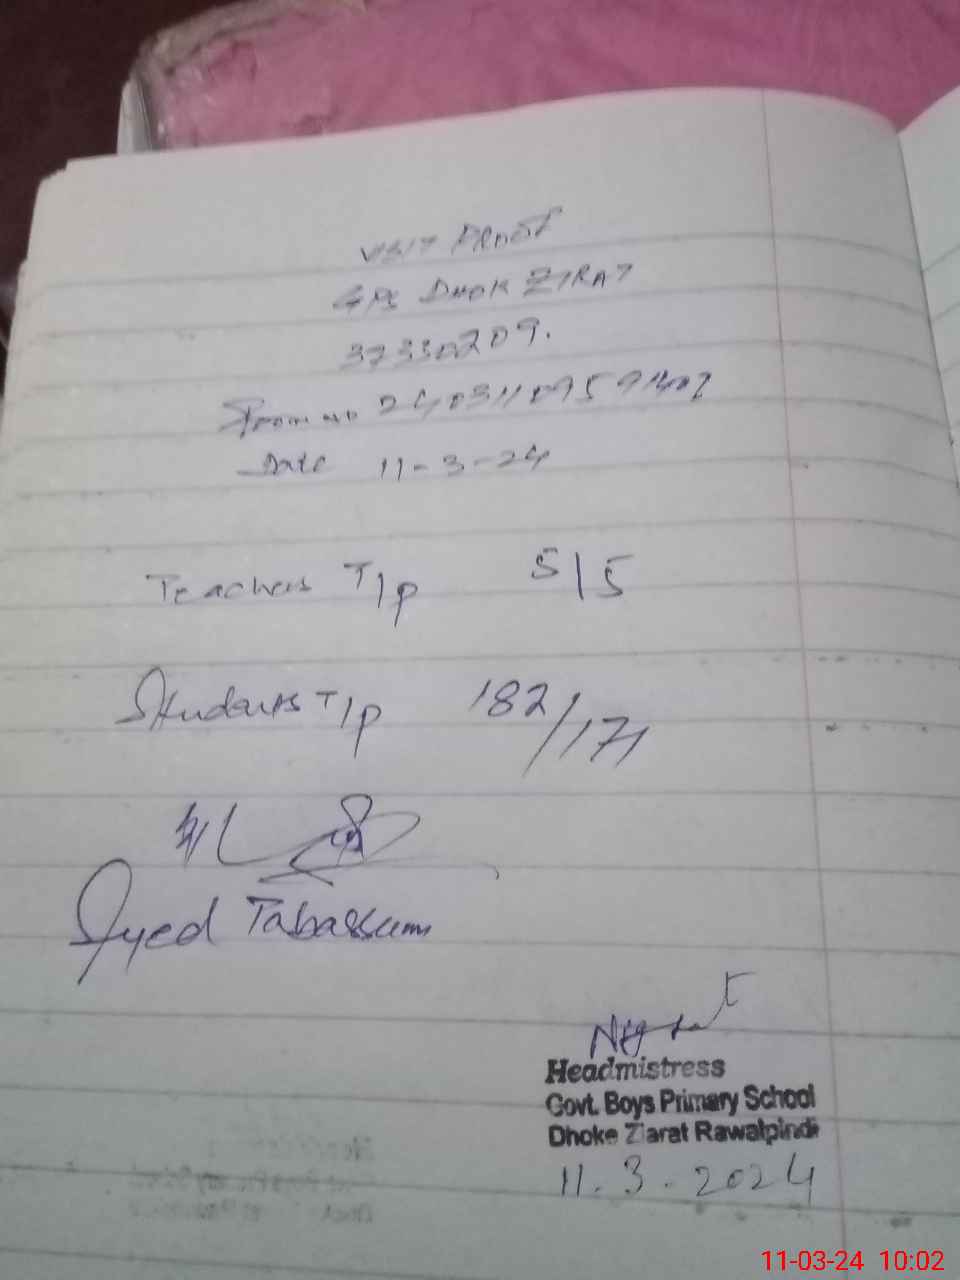 VISIT PROOF
GPS DHOK ZIRAT
37330209.
Date 11-3-24
Teachers T/p 5/5
Students T/p 182/171
Syed Tabassum
Headmistress
Govt. Boys Primary School
Dhoke Ziarat Rawalpindi
11.3.2024
11-03-24 10:02